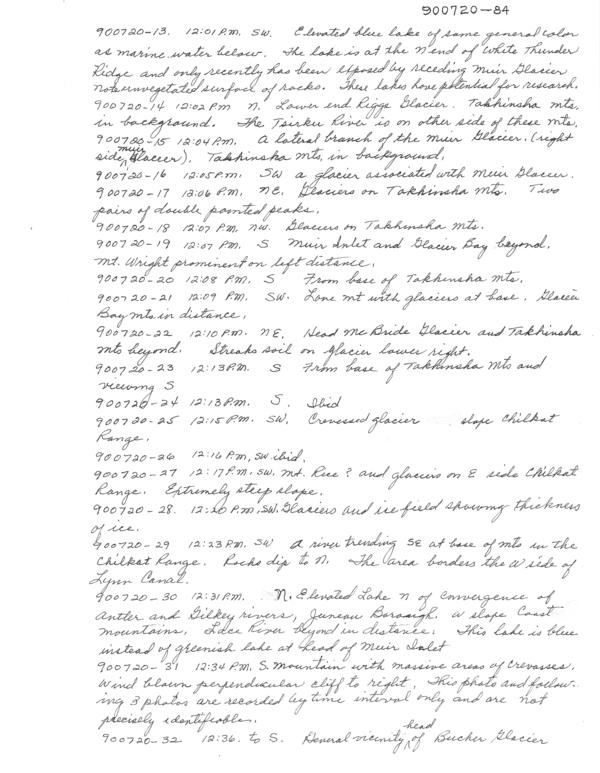 900720-84
900720-13. 12:01 P.M. SW. Elevated blue lake of same general color
as marine water below. The lake is at the N end of White Thunder
Ridge and only recently has been exposed by receding Muir Glacier
Note unvegetated surface of rocks. These lakes have potential for research.
900720-14 12:02 PM N. Lower end Riggs Glacier. Takhinsha mts.
in background. The Tsirku River is on other side of these mts.
900720-15 12:04 P.M. A lateral branch of the Muir Glacier. (right
side, Muir Glacier). Takhinska Mts, in background.
900720-16 12:05 P.M. SW a glacier associated with Muir Glacier.
900720-17 12:06 P.M. NE. Glaciers on Takhinsha Mts. Two
pairs of double pointed peaks.
900720-18 12:07 P.M. NW. Glaciers on Takhinsha Mts.
900720-19 12:07 P.M. S Muir Inlet and Glacier Bay beyond.
Mt. Wright prominent on left distance.
900720-20 12:08 P.M. S From base of Takhinsha Mts.
900720-21 12:09 P.M. SW. Lone mt with glaciers at base. Glacier
Bay mts in distance.
900720-22 12:10 P.M. NE. Head McBride Glacier and Takhinsha
mts beyond. Streaks soil on glacier lower right.
900720-23 12:13 P.M. S From base of Takhinsha Mts and
viewing S
900720-24 12:13 P.M. S. Ibid
900720-25 12:15 P.M. SW. Crevassed glacier slope Chilkat
Range.
900720-26 12:16 P.M, SW ibid.
900720-27 12:17 P.M. SW. Mt. Rice ? and glaciers on E side Chilkat
Range. Extremely steep slope.
900720-28. 12:20 P.M, SW. Glaciers and ice field showing thickness
of ice.
900720-29 12:23 P.M. SW A river trending SE at base of mts in the
Chilkat Range. Rocks dip to N. The area borders the W side of
Lynn Canal.
900720-30 12:31 P.M. N. Elevated Lake N of convergence of
Antler and Gilkey rivers, Juneau Borough. W slope Coast
Mountains. Lace River beyond in distance. This lake is blue
instead of greenish lake at head of Muir Inlet
900720-31 12:34 P.M. S. Mountain with massive areas of crevasses.
Wind blown perpendicular cliff to right. This photo and follow-
ing 3 photos are recorded by time interval only and are not
precisely identifiable.
900720-32 12:36. to S. General vicinity head of Bucher Glacier